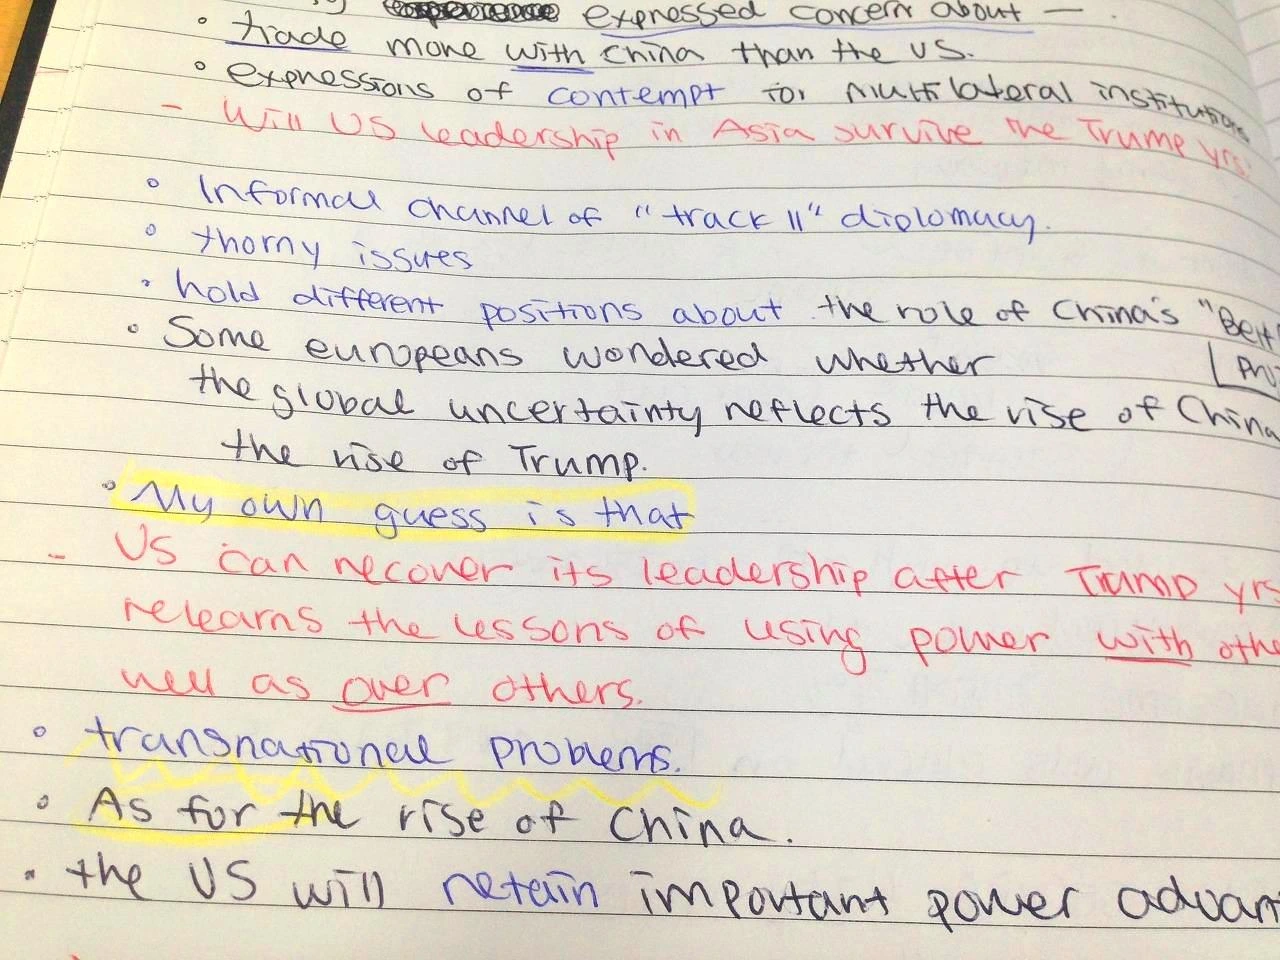 expressed concern about —
• trade more with China than the US.
• expressions of contempt for multilateral institutions
- Will US leadership in Asia survive the Trump yrs.
• Informal channel of "track II" diplomacy.
• thorny issues
• hold different positions about the role of China's "Belt
• Some europeans wondered whether
the global uncertainty reflects the rise of China
the rise of Trump.
• My own guess is that
- US can recover its leadership after Trump yrs
relearns the lessons of using power with othe
well as over others.
• transnational problems.
• As for the rise of China.
• the US will retain important power advant